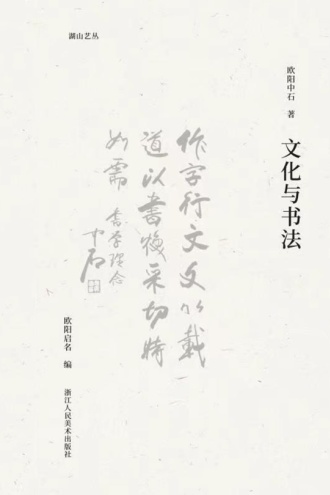 湖山艺丛
欧阳中石 著
文化与书法
作字行文文以载
道以书焕采切时
如需 书学理念
中石
欧阳启名 编
浙江人民美术出版社